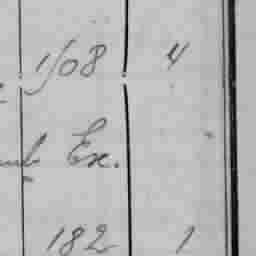 1/08 4
Ex.
182 1